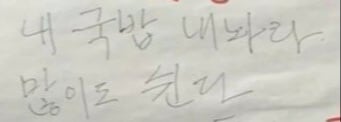 내 국밥 내놔라.
많이도 쉰다